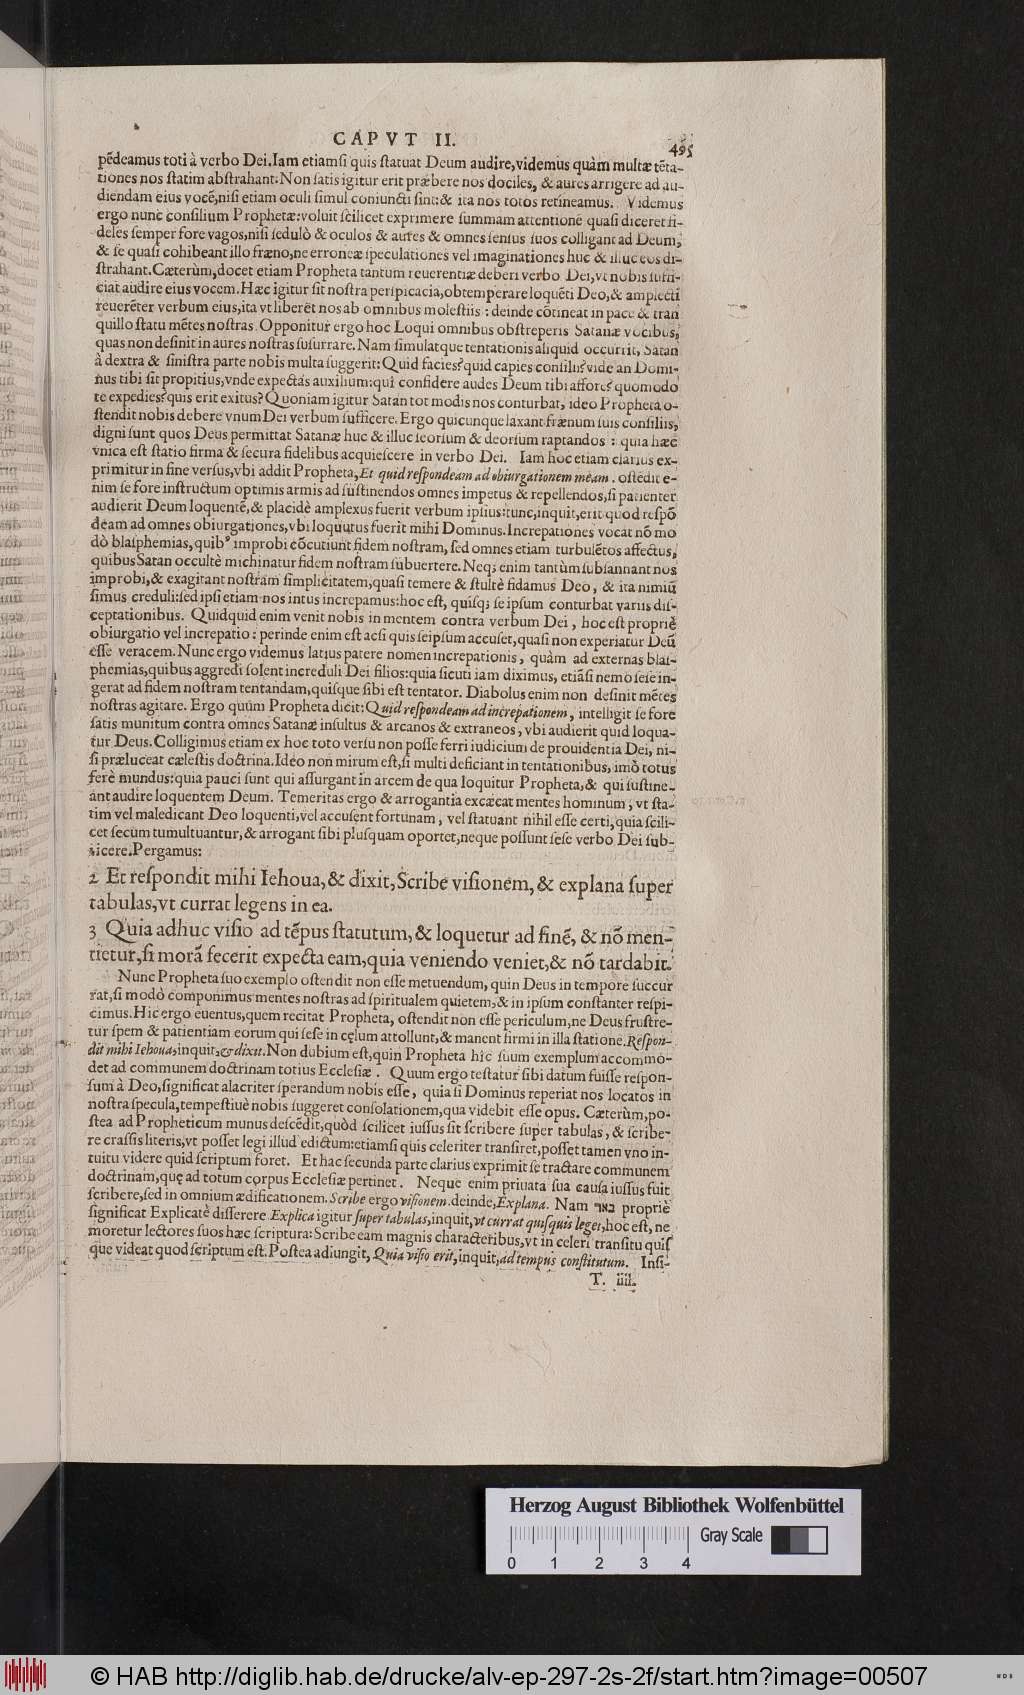 CAPVT II. 495
pēdeamus toti à verbo Dei. Iam etiamſi quis ſtatuat Deum audire, videmus quàm multæ tēta-
tiones nos ſtatim abſtrahant: Non ſatis igitur erit præbere nos dociles, & aures arrigere ad au-
diendam eius vocē, niſi etiam oculi ſimul coniuncti ſint: & ita nos totos retineamus. Videmus
ergo nunc conſilium Prophetæ: voluit ſcilicet exprimere ſummam attentionē quaſi diceret fi-
deles ſemper fore vagos, niſi ſedulò & oculos & aures & omnes ſenſus ſuos colligant ad Deum,
& ſe quaſi cohibeant illo fræno, ne erroneæ ſpeculationes vel imaginationes huc & illuc eos di-
ſtrahant. Cæterùm, docet etiam Propheta tantum reuerentiæ deberi verbo Dei, vt nobis ſuffi-
ciat audire eius vocem. Hæc igitur ſit noſtra perſpicacia, obtemperare loquēti Deo, & amplecti
reuerēter verbum eius, ita vt liberēt nos ab omnibus moleſtiis: deinde cōtineat in pace & tran
quillo ſtatu mētes noſtras. Opponitur ergo hoc Loqui omnibus obſtreperis Satanæ vocibus,
quas non deſinit in aures noſtras ſuſurrare. Nam ſimulatque tentationis aliquid occurrit, Satan
à dextra & ſiniſtra parte nobis multa ſuggerit: Quid facies? quid capies conſilii? vide an Domi-
nus tibi ſit propitius, vnde expectas auxilium: quî confidere audes Deum tibi affore? quomodo
te expedies? quis erit exitus? Quoniam igitur Satan tot modis nos conturbat, ideo Propheta o-
ſtendit nobis debere vnum Dei verbum ſufficere. Ergo quicunque laxant frænum ſuis conſiliis,
digni ſunt quos Deus permittat Satanæ huc & illuc ſeorſum & deorſum raptandos: quia hæc
vnica eſt ſtatio firma & ſecura fidelibus acquieſcere in verbo Dei. Iam hoc etiam clarius ex-
primitur in fine verſus, vbi addit Propheta, Et quid reſpondeam ad obiurgationem meam. oſtēdit e-
nim ſe fore inſtructum optimis armis ad ſuſtinendos omnes impetus & repellendos, ſi patienter
audierit Deum loquentē, & placidè amplexus fuerit verbum ipſius: tunc, inquit, erit quod reſpō
deam ad omnes obiurgationes, vbi loquutus fuerit mihi Dominus. Increpationes vocat nō mo
dò blaſphemias, quibꝰ improbi cōcutiunt fidem noſtram, ſed omnes etiam turbulētos affectus,
quibus Satan occultè michinatur fidem noſtram ſubuertere. Neq; enim tantùm ſubſannant nos
improbi, & exagitant noſtram ſimplicitatem, quaſi temere & ſtultè fidamus Deo, & ita nimiū
ſimus creduli: ſed ipſi etiam nos intus increpamus: hoc eſt, quiſq; ſe ipſum conturbat variis diſ-
ceptationibus. Quidquid enim venit nobis in mentem contra verbum Dei, hoc eſt propriè
obiurgatio vel increpatio: perinde enim eſt acſi quis ſeipſum accuſet, quaſi non experiatur Deū
eſſe veracem. Nunc ergo videmus latius patere nomen increpationis, quàm ad externas blaſ-
phemias, quibus aggredi ſolent increduli Dei filios: quia ſicuti iam diximus, etiāſi nemo ſeſe in-
gerat ad fidem noſtram tentandam, quiſque ſibi eſt tentator. Diabolus enim non deſinit mētes
noſtras agitare. Ergo quum Propheta dicit: Quid reſpondeam ad increpationem, intelligit ſe fore
ſatis munitum contra omnes Satanæ inſultus & arcanos & extraneos, vbi audierit quid loqua-
tur Deus. Colligimus etiam ex hoc toto verſu non poſſe ferri iudicium de prouidentia Dei, ni-
ſi præluceat cæleſtis doctrina. Ideo non mirum eſt, ſi multi deficiant in tentationibus, imò totus
ferè mundus: quia pauci ſunt qui aſſurgant in arcem de qua loquitur Propheta, & qui ſuſtine-
ant audire loquentem Deum. Temeritas ergo & arrogantia excæcat mentes hominum, vt ſta-
tim vel maledicant Deo loquenti, vel accuſent fortunam, vel ſtatuant nihil eſſe certi, quia ſcili-
cet ſecum tumultuantur, & arrogant ſibi pluſquam oportet, neque poſſunt ſeſe verbo Dei ſub-
iicere. Pergamus:
2 Et reſpondit mihi Iehoua, & dixit, Scribe viſionem, & explana ſuper
tabulas, vt currat legens in ea.
3 Quia adhuc viſio ad tēpus ſtatutum, & loquetur ad finē, & nō men-
tietur, ſi morā fecerit expecta eam, quia veniendo veniet, & nō tardabit.
Nunc Propheta ſuo exemplo oſtendit non eſſe metuendum, quin Deus in tempore ſuccur
rat, ſi modò componimus mentes noſtras ad ſpiritualem quietem, & in ipſum conſtanter reſpi-
cimus. Hic ergo euentus, quem recitat Propheta, oſtendit non eſſe periculum, ne Deus fruſtre-
tur ſpem & patientiam eorum qui ſeſe in cęlum attollunt, & manent firmi in illa ſtatione. Reſpon-
dit mihi Iehoua, inquit, & dixit. Non dubium eſt, quin Propheta hîc ſuum exemplum accommo-
det ad communem doctrinam totius Eccleſiæ. Quum ergo teſtatur ſibi datum fuiſſe reſpon-
ſum à Deo, ſignificat alacriter ſperandum nobis eſſe, quia ſi Dominus reperiat nos locatos in
noſtra ſpecula, tempeſtiuè nobis ſuggeret conſolationem, qua videbit eſſe opus. Cæterùm, po-
ſtea ad Propheticum munus deſcēdit, quòd ſcilicet iuſſus ſit ſcribere ſuper tabulas, & ſcribe-
re craſſis literis, vt poſſet legi illud edictum: etiamſi quis celeriter tranſiret, poſſet tamen vno in-
tuitu videre quid ſcriptum foret. Et hac ſecunda parte clarius exprimit ſe tractare communem
doctrinam, quę ad totum corpus Eccleſiæ pertinet. Neque enim priuata ſua cauſa iuſſus fuit
ſcribere, ſed in omnium ædificationem. Scribe ergo viſionem. deinde, Explana. Nam באר propriè
ſignificat Explicatè differere. Explica igitur ſuper tabulas, inquit, vt currat quiſquis leget, hoc eſt, ne
moretur lectores ſuos hæc ſcriptura: Scribe eam magnis characteribus, vt in celeri tranſitu quiſ
que videat quod ſcriptum eſt. Poſtea adiungit, Quia viſio erit, inquit, ad tempus conſtitutum. Inſi-
T. iiii.
Herzog August Bibliothek Wolfenbüttel
Gray Scale
0 1 2 3 4
© HAB http://diglib.hab.de/drucke/alv-ep-297-2s-2f/start.htm?image=00507